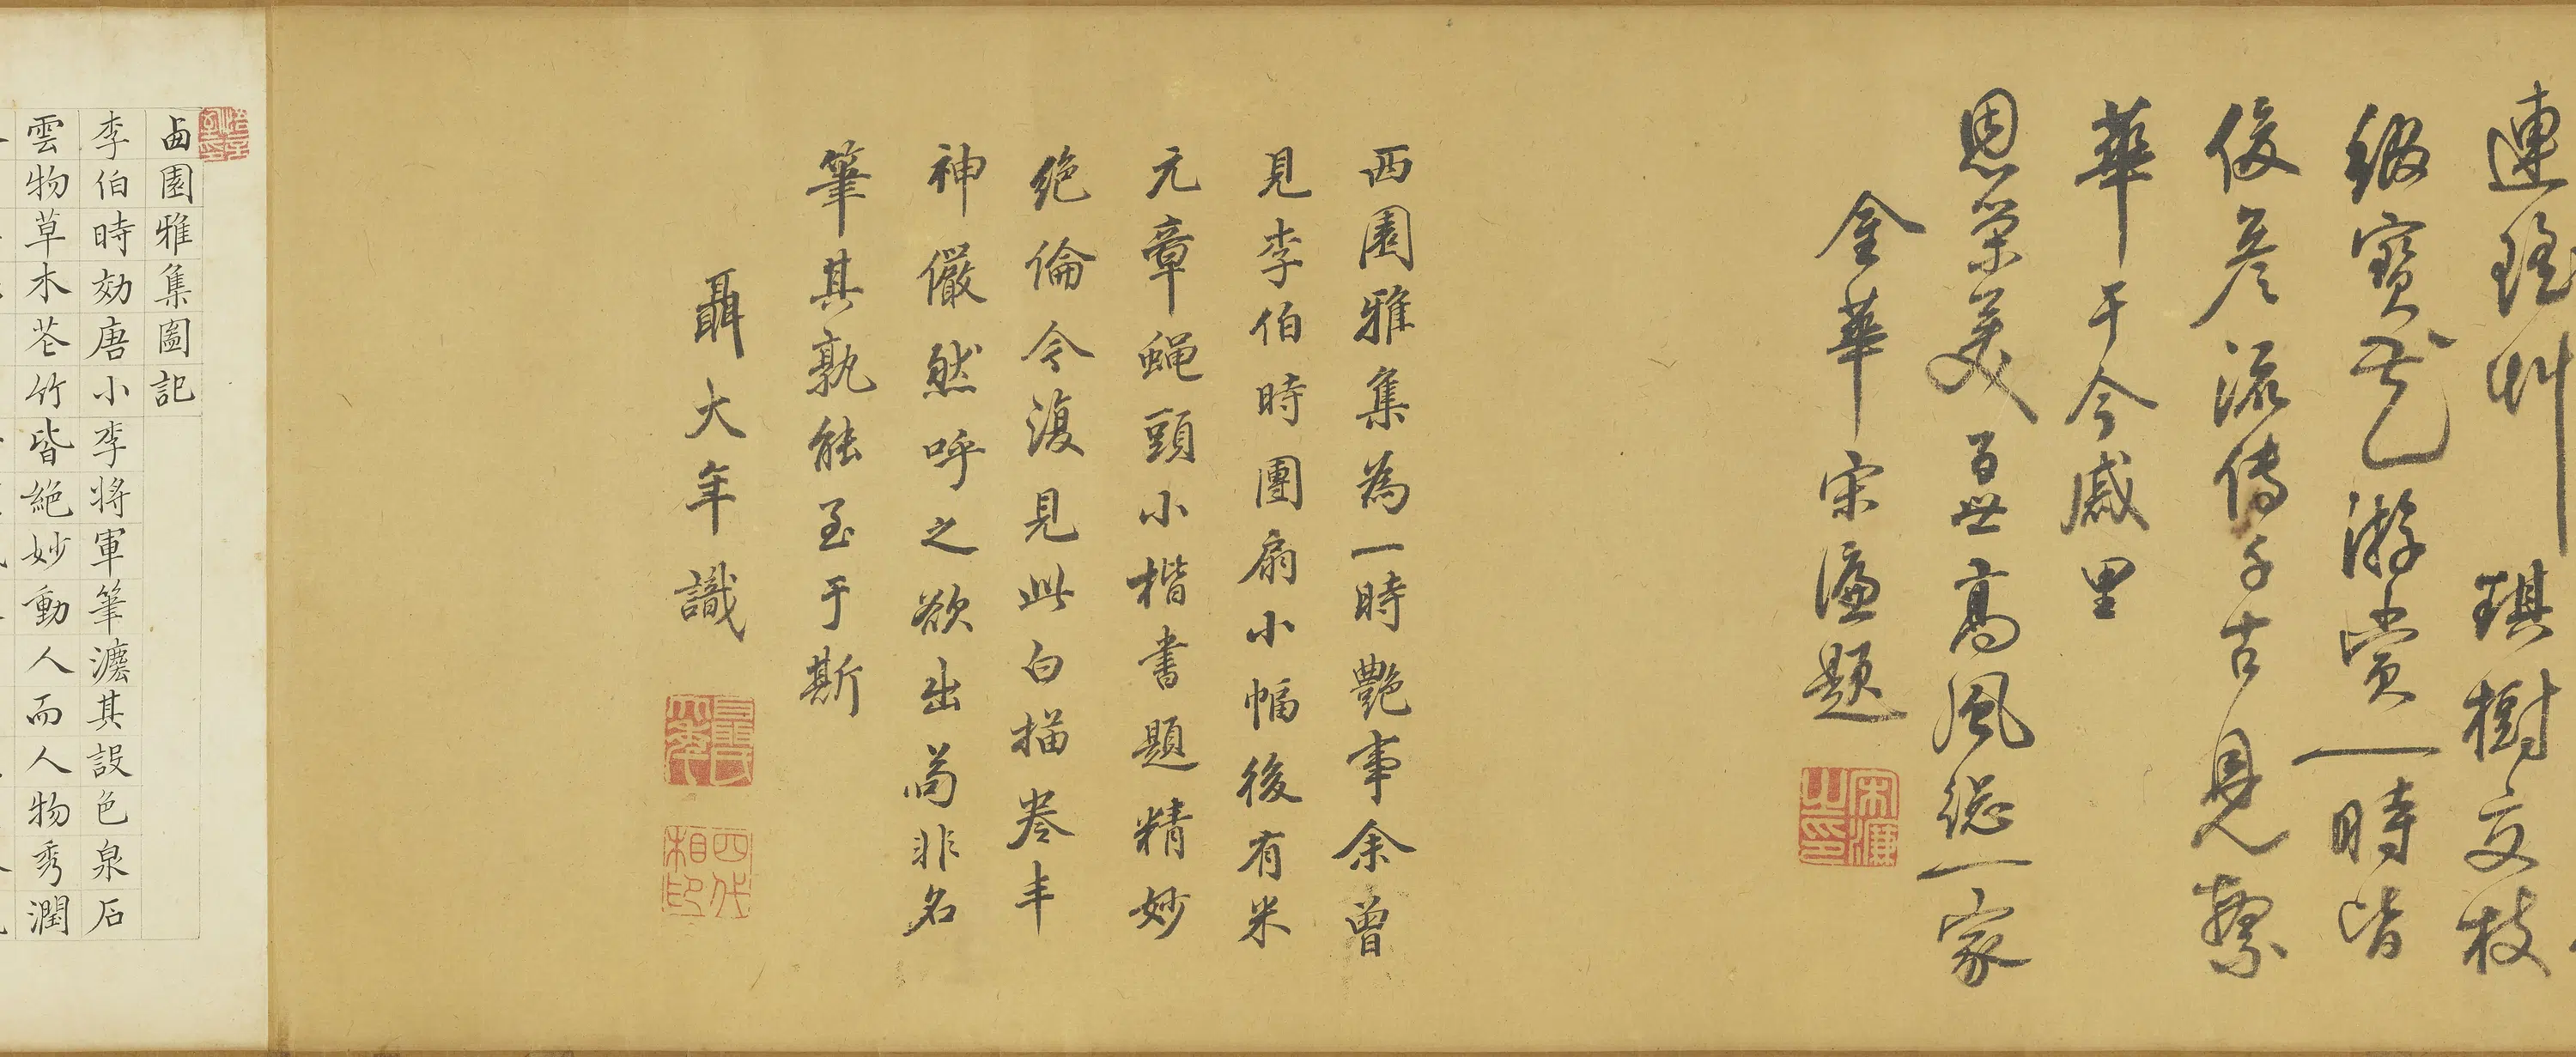 連瑤草琪樹交枝
綴寶花游賞一時皆
俊彥流傳千古見繁
華于今戚里
恩榮美百世高風總一家
金華宋濂題
宋濂之印
西園雅集為一時艷事余曾
見李伯時團扇小幅後有米
元章蠅頭小楷書題精妙
絶倫今復見此白描卷丰
神儼然呼之欲出苟非名
筆其孰能至于斯
聶大年識
四代相印
西園雅集圖記
李伯時効唐小李將軍筆灋其設色泉石
雲物草木花竹皆絶妙動人而人物秀潤